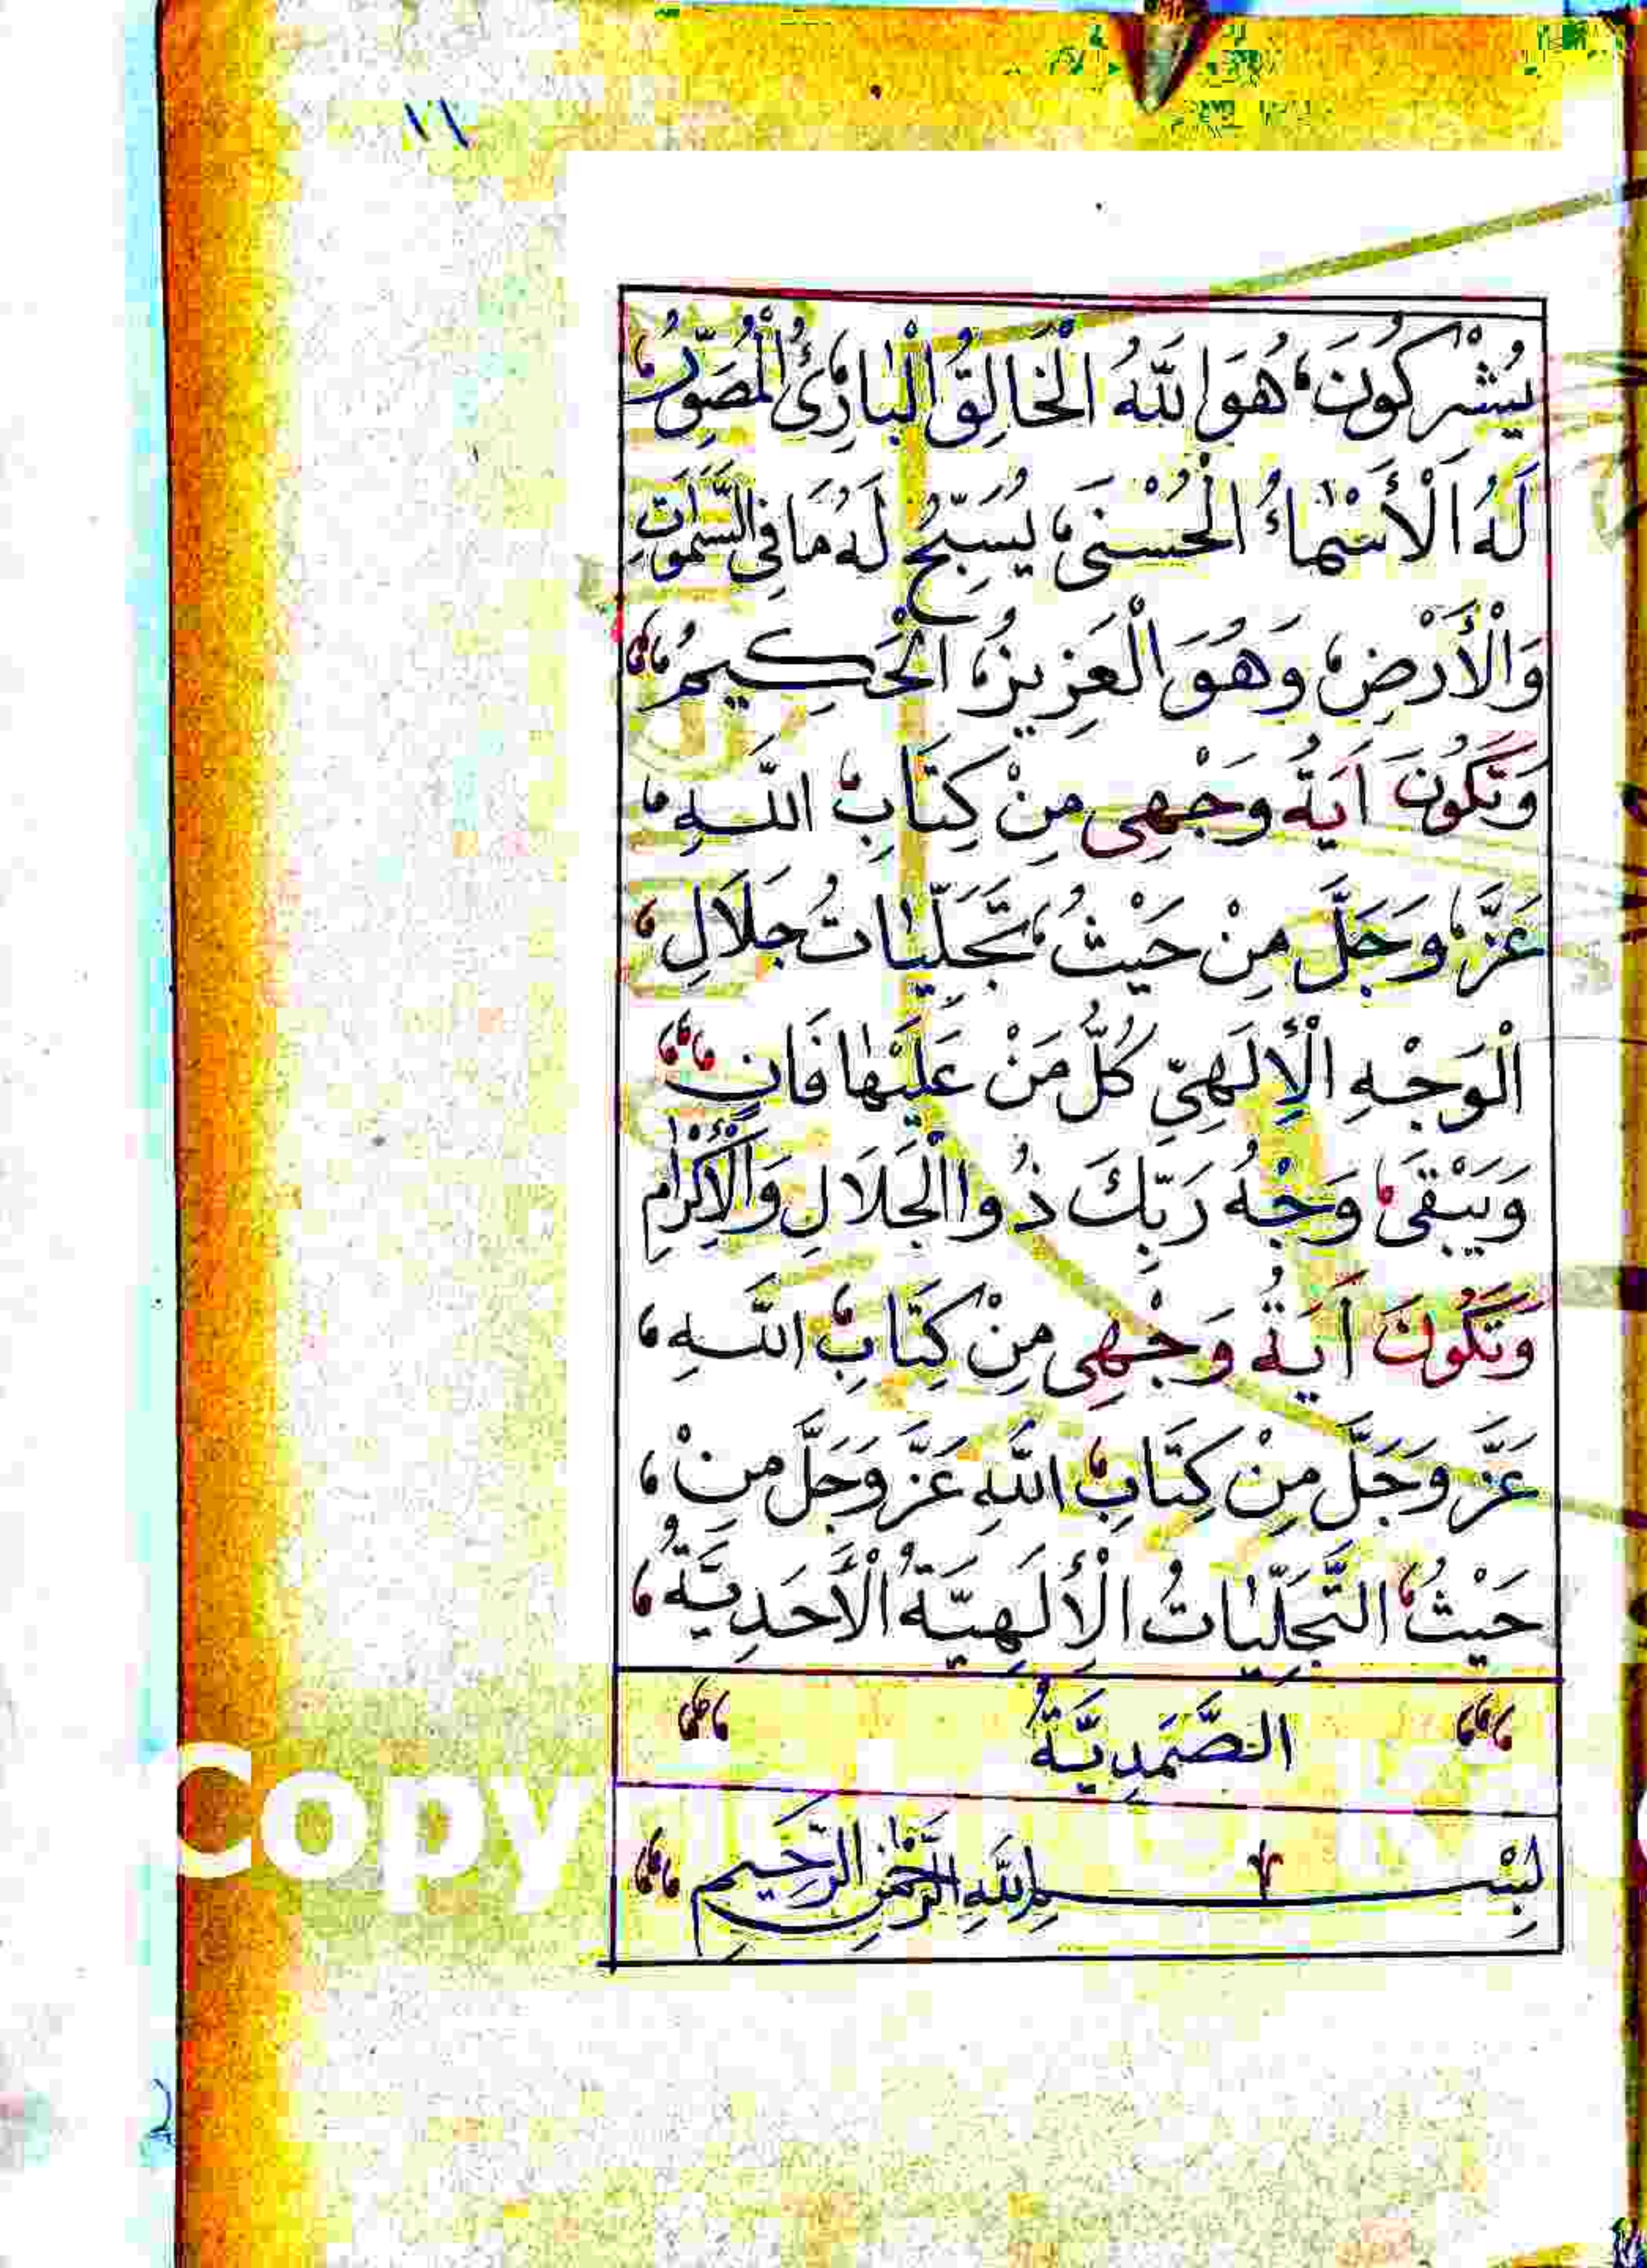 ١١
يُشْرِكُونَ، هُوَ اللّٰهُ الْخَالِقُ الْبَارِئُ الْمُصَوِّرُ،
لَهُ الْأَسْمَاءُ الْحُسْنَى، يُسَبِّحُ لَهُ مَا فِي السَّمٰوَاتِ
وَالْأَرْضِ، وَهُوَ الْعَزِيزُ، الْحَكِيمُ،،،
وَتَكُونَ اَيَةُ وَجْهِى مِنْ كِتَابِ، اللّٰهِ،
عَزَّ، وَجَلَّ مِنْ حَيْثُ، تَجَلِّيَاتُ جَلَالِ،
الْوَجْهِ الْأِلَهِيِّ كُلُّ مَنْ عَلَيْهَا فَانٍ،،،
وَيَبْقَى، وَجْهُ رَبِّكَ ذُوا الْجَلَالِ وَالْأِكْرَامِ
وَتَكُونَ اَيَةُ وَجْهِى مِنْ كِتَابِ، اللّٰهِ،
عَزَّ وَجَلَّ مِنْ كِتَابِ، اللّٰهِ عَزَّ وَجَلَّ مِنْ،
حَيْثُ، التَّجَلِّيَاتُ الْأِلَهِيَّةُ الْأَحَدِيَّةُ،
،،، الصَّمَدِيَّةُ ،،،
بِسْمِ اللّٰهِ الرَّحْمٰنِ الرَّحِيمِ ،،،
Copy